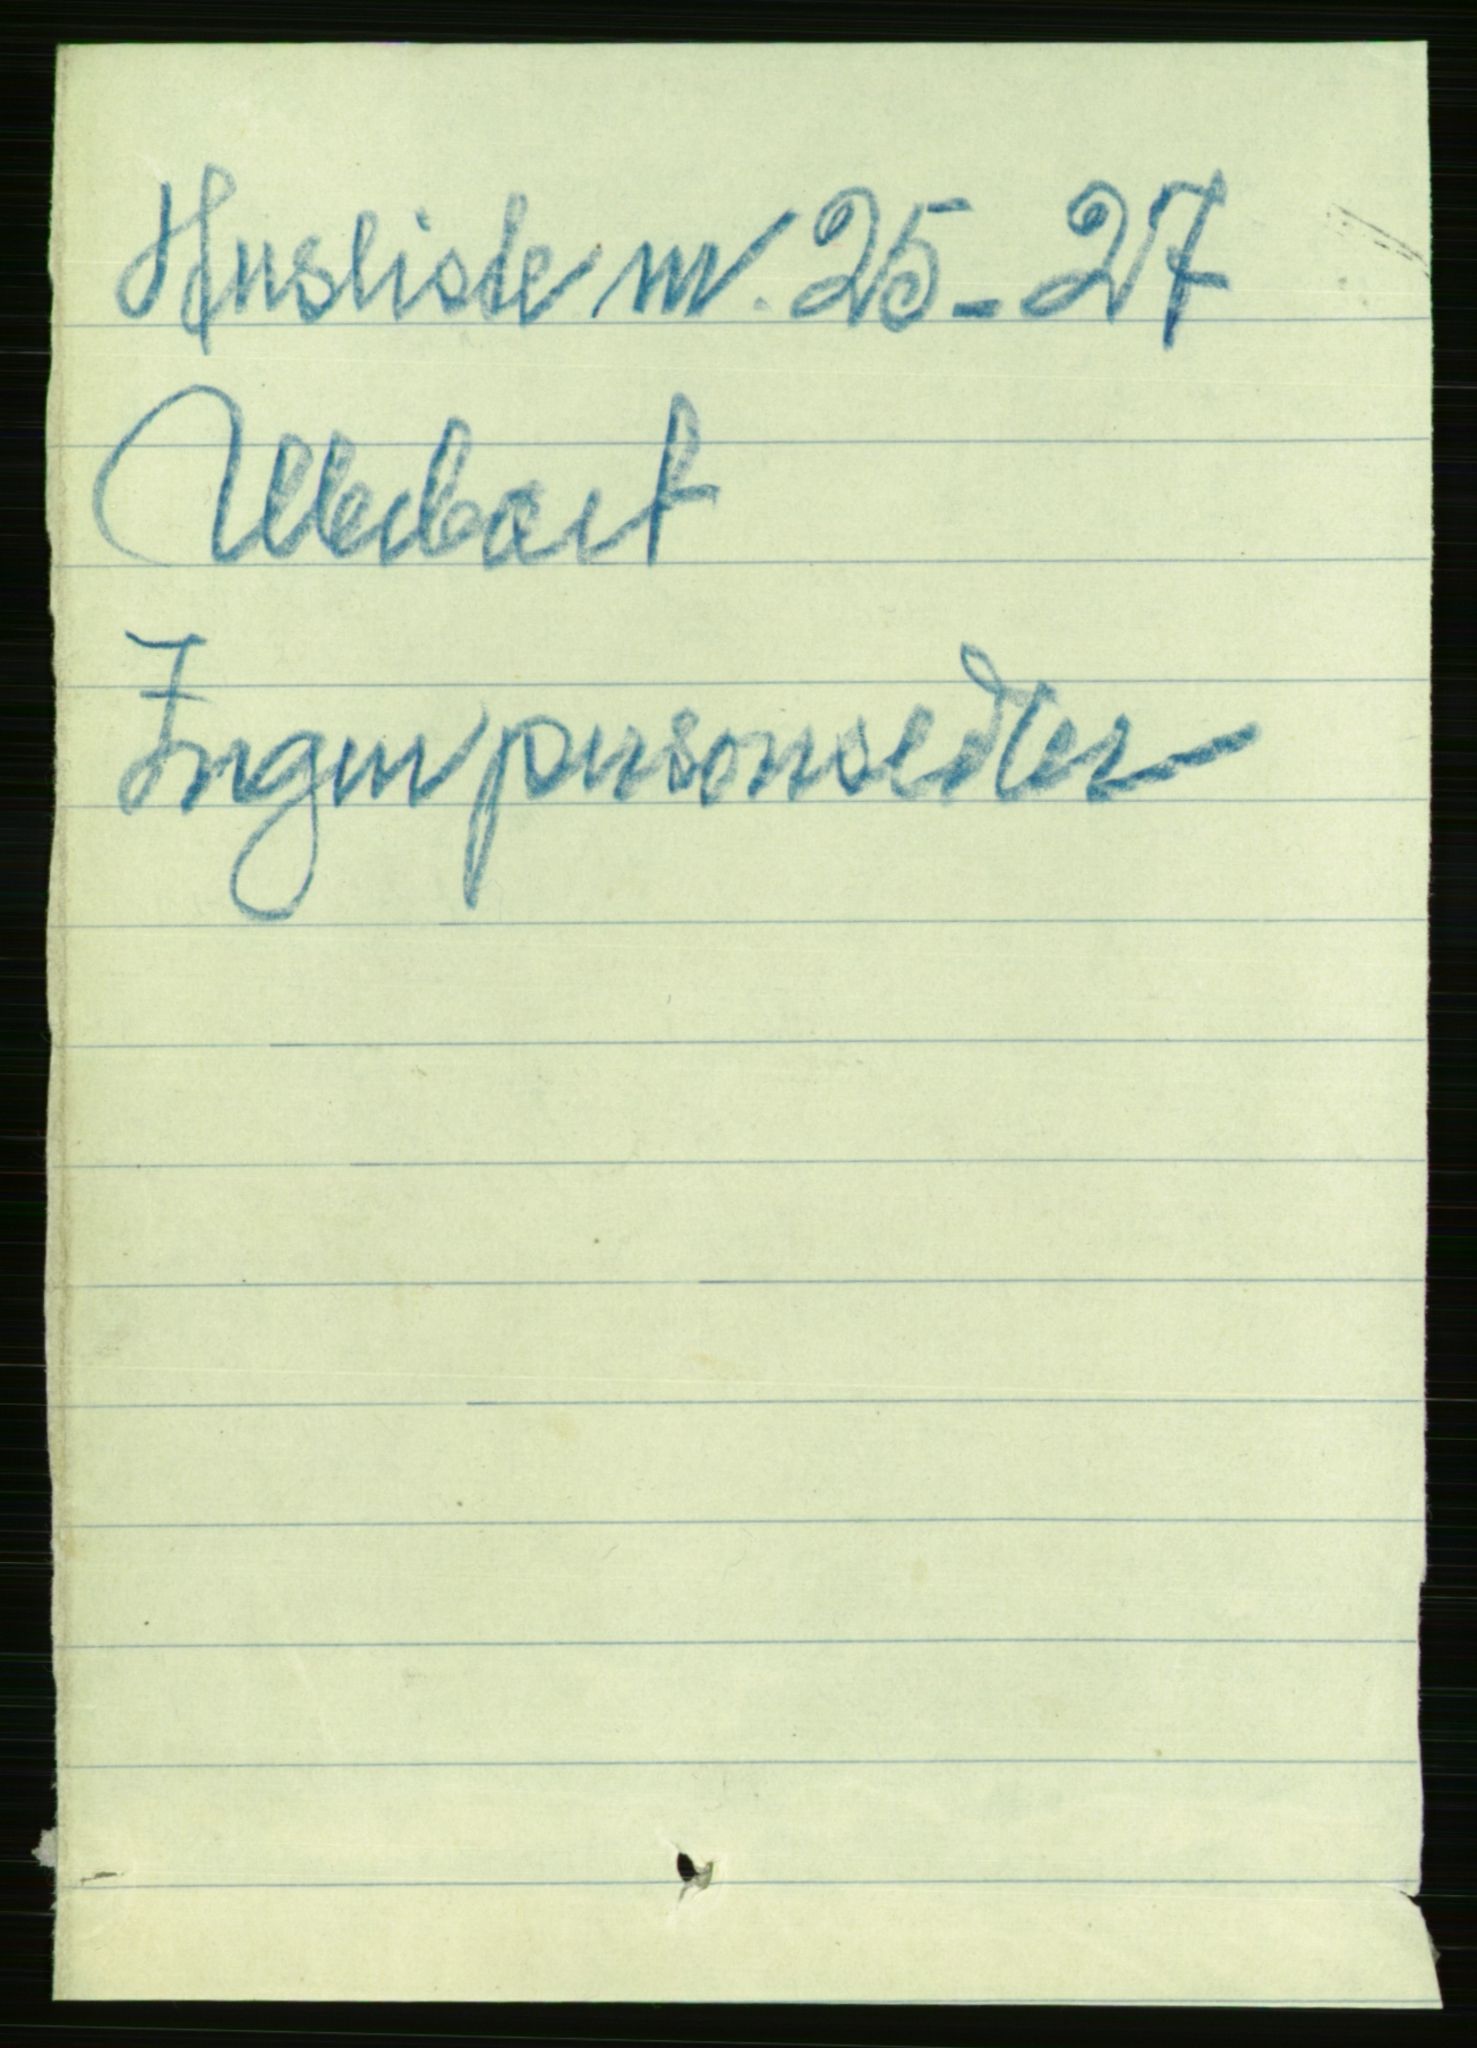 Husliste nr. 25-27
Ubeboet
Ingen personsedler